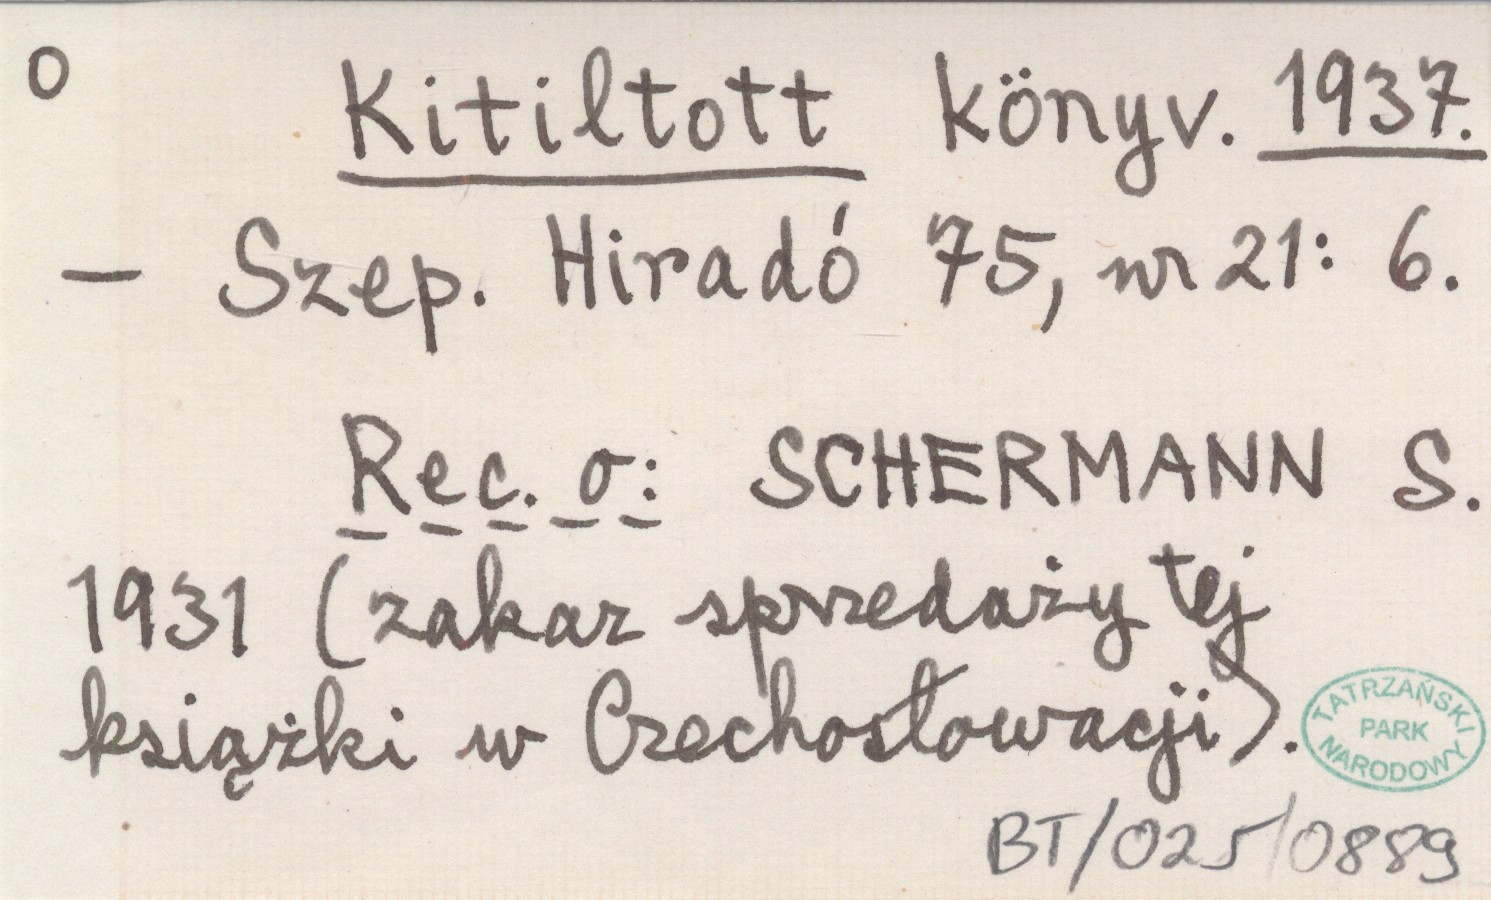 O Kitiltott könyv. 1937.
— Szep. Hiradó 75, nr 21: 6.
Rec. o: SCHERMANN S.
1931 (zakaz sprzedaży tej
książki w Czechosłowacji).
TATRZAŃSKI
PARK
NARODOWY
BT/025/0889